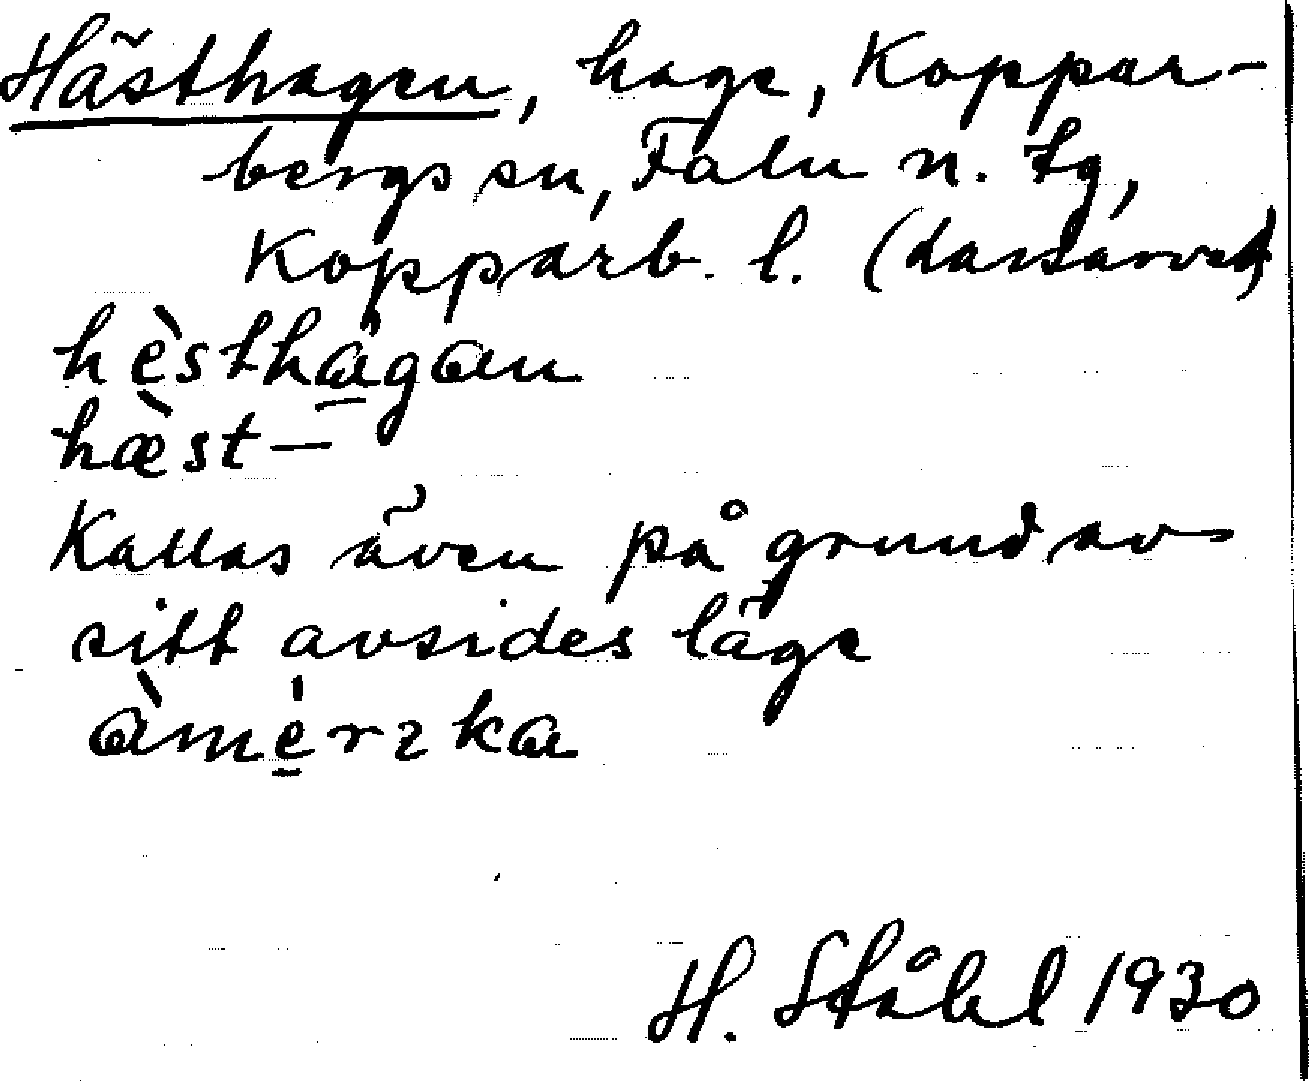 Hästhagen, hage, Koppar-
bergs sn, Falu n. tg,
Kopparb. l. (dansarvet)
hèsthàgan
hæ̀st—
Kallas även på grund av
sitt avsides läge
àmèrıka
H. Ståhl 1930